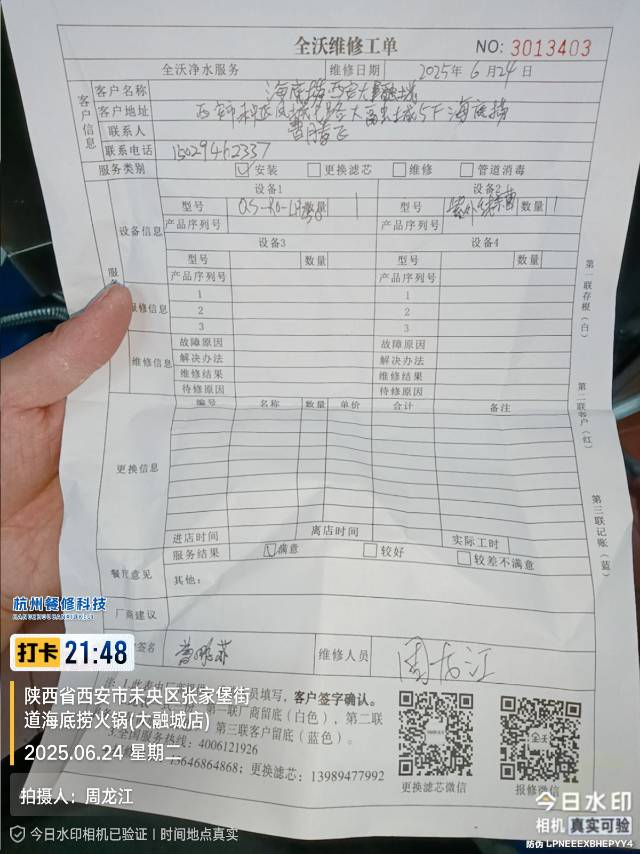 全沃维修工单
NO: 3013403
全沃净水服务 维修日期 2025年 6月 24日
客户信息
客户名称 海底捞西安大融城
客户地址 西安市 5F 海底捞
联系人
联系电话 15029462337
服务类别 安装 更换滤芯 维修 管道消毒
设备1 设备2
设备信息
型号 QS-RO- 数量 1 型号 紫外线杀菌 数量 1
产品序列号 产品序列号
设备3 设备4
型号 数量 型号 数量
产品序列号 产品序列号
报修信息
1 1
2 2
3 3
维修信息
故障原因 故障原因
解决办法 解决办法
维修结果 维修结果
待修原因 待修原因
编号 名称 数量 单价 合计 备注
更换信息
进店时间 离店时间 实际工时
服务结果 满意 较好 较差不满意
餐厅意见 其他:
厂商建议
签名 维修人员 周龙江
第一联存根(白)
第二联客户(红)
第三联记账(蓝)
员填写,客户签字确认。
第一联厂商留底(白色),第二联
第三联客户留底(蓝色)。
3.全国服务热线:4006121926
13646864868;更换滤芯:13989477992
更换滤芯微信 报修微信
全沃
杭州餐修科技
HANGZHOUCANXIUKEJI
打卡 21:48
陕西省西安市未央区张家堡街
道海底捞火锅(大融城店)
2025.06.24 星期二
拍摄人:周龙江
今日水印相机已验证 | 时间地点真实
今日水印
相机 真实可验
防伪 LPNEEEXBHEPYY4